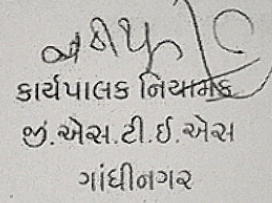 કાર્યપાલક નિયામક
જી.એસ.ટી.ઈ.એસ
ગાંધીનગર